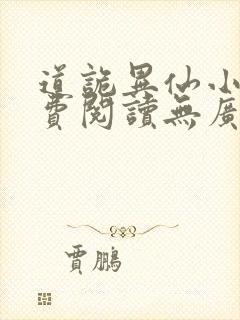 道詭異仙小
費閱讀無廣
賈鵬